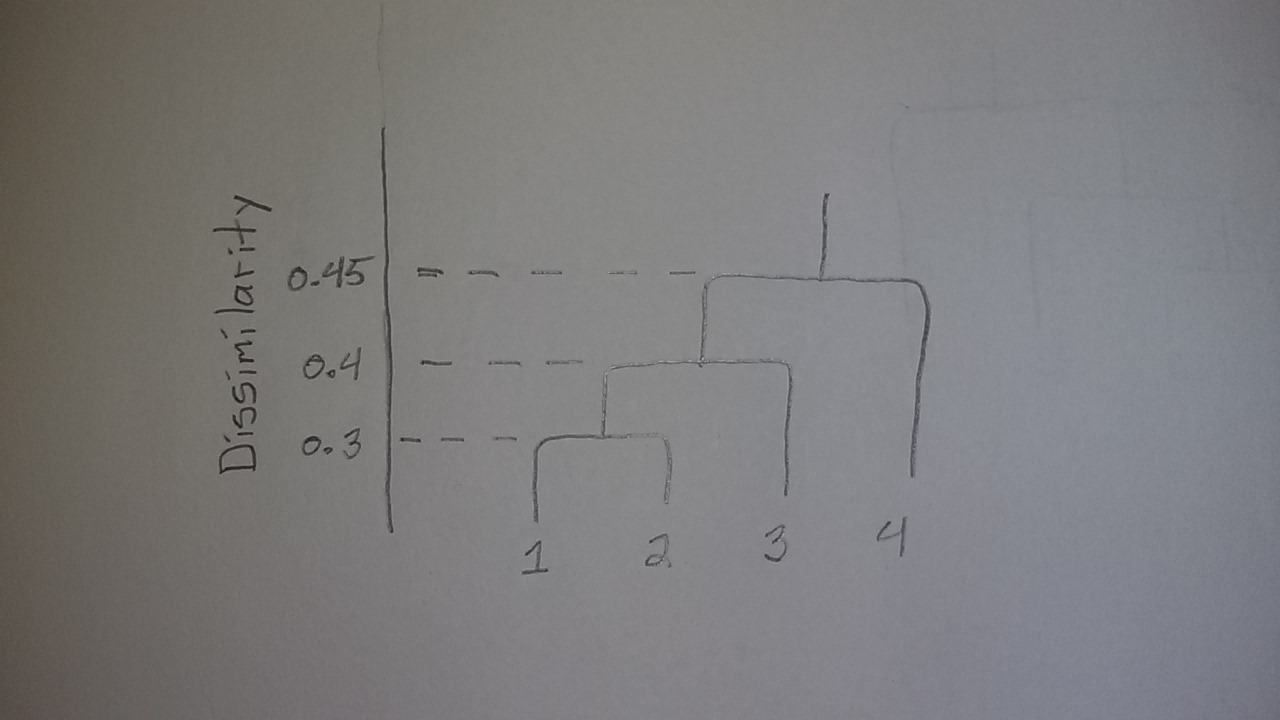 Dissimilarity
0.45
0.4
0.3
1 2 3 4